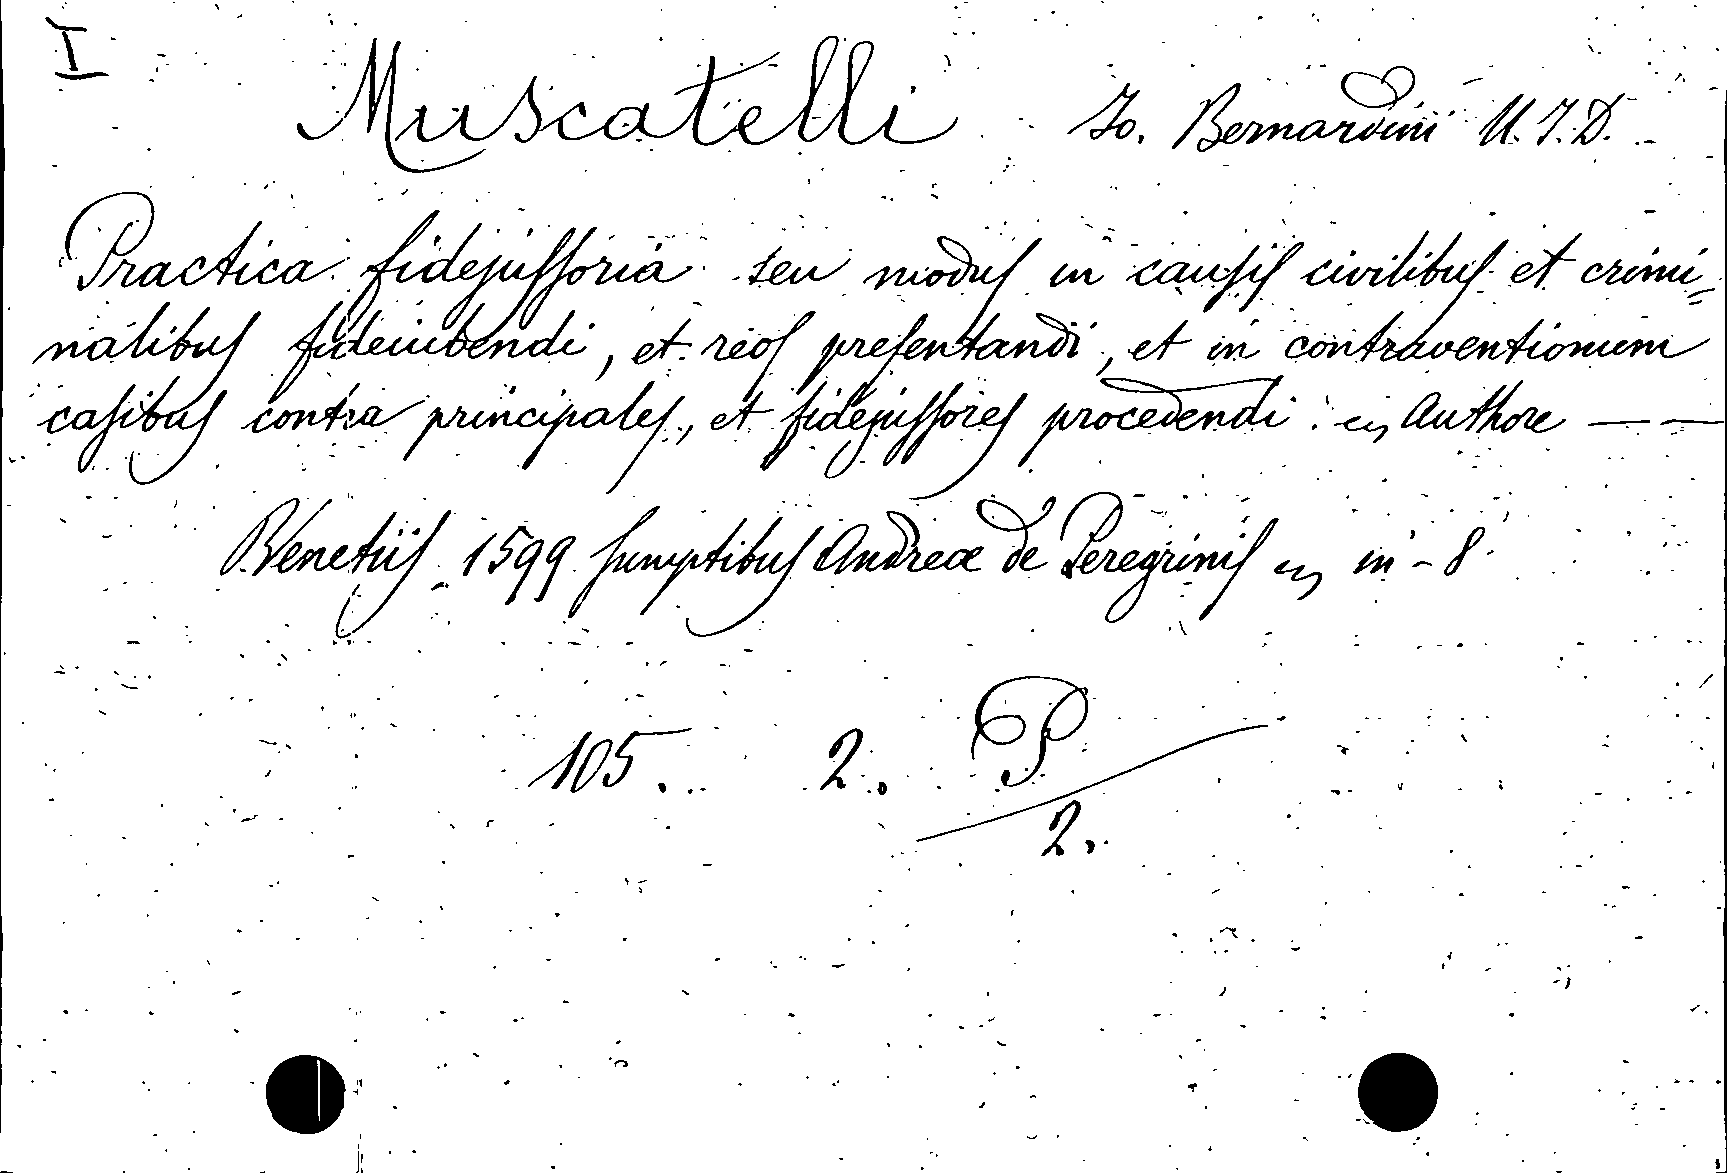 I
Muscatelli Jo. Bernardini U. J. D.
Practica fidejussoria seu modus in causis civilibus et crimi=
nalibus fideiubendi, et reos presentandi, et in contraventionum
casibus contra principales, et fidejussores procedendi: Authore — —
Venetiis 1599 sumptibus Andreæ de Peregrinis in - 8
105. 2. P
2.